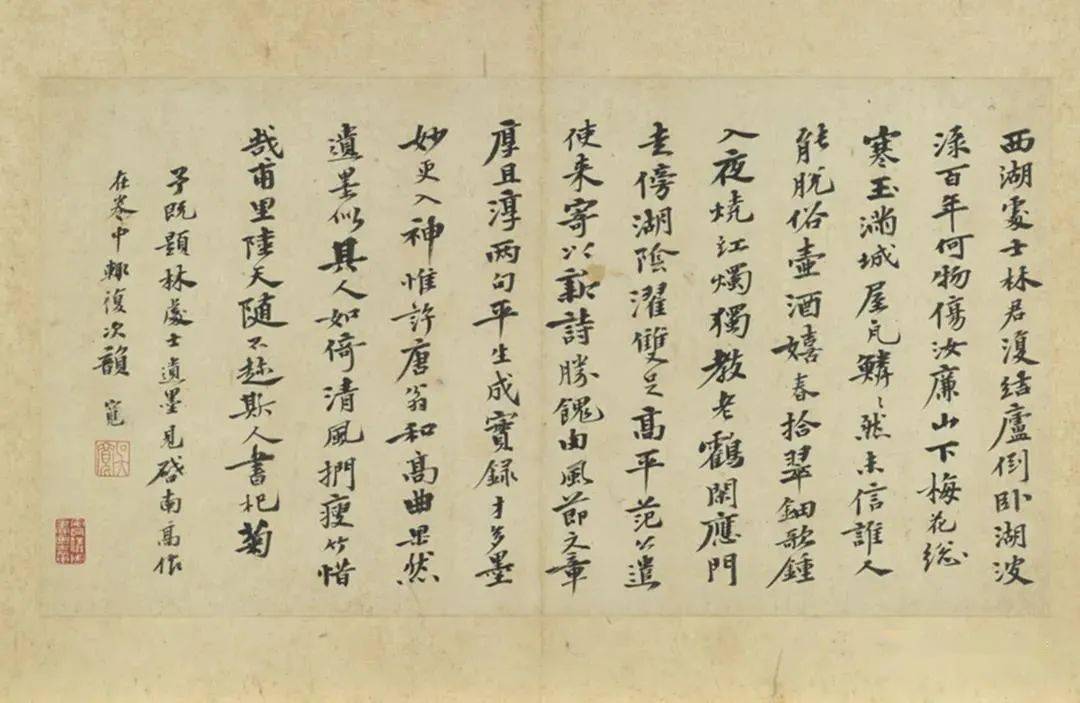 西湖處士林君復結廬倒卧湖波
淥百年何物傷汝廉山下梅花總
寒玉滿城屋瓦鱗〻然未信誰人
能脫俗壺酒嬉春拾翠鈿歌鍾
入夜燒江燭獨教老鶴閑應門
走傍湖陰濯雙足高平范公遣
使來寄以新詩勝餽肉風節文章
厚且淳兩句平生成實録才多墨
妙更入神惟許唐翁和高曲果然
遺墨似其人如倚清風捫瘦竹惜
哉甫里陸天隨不趂斯人書杞菊
予既題林處士遺墨見啓南高作
在卷中輒復次韻 寬